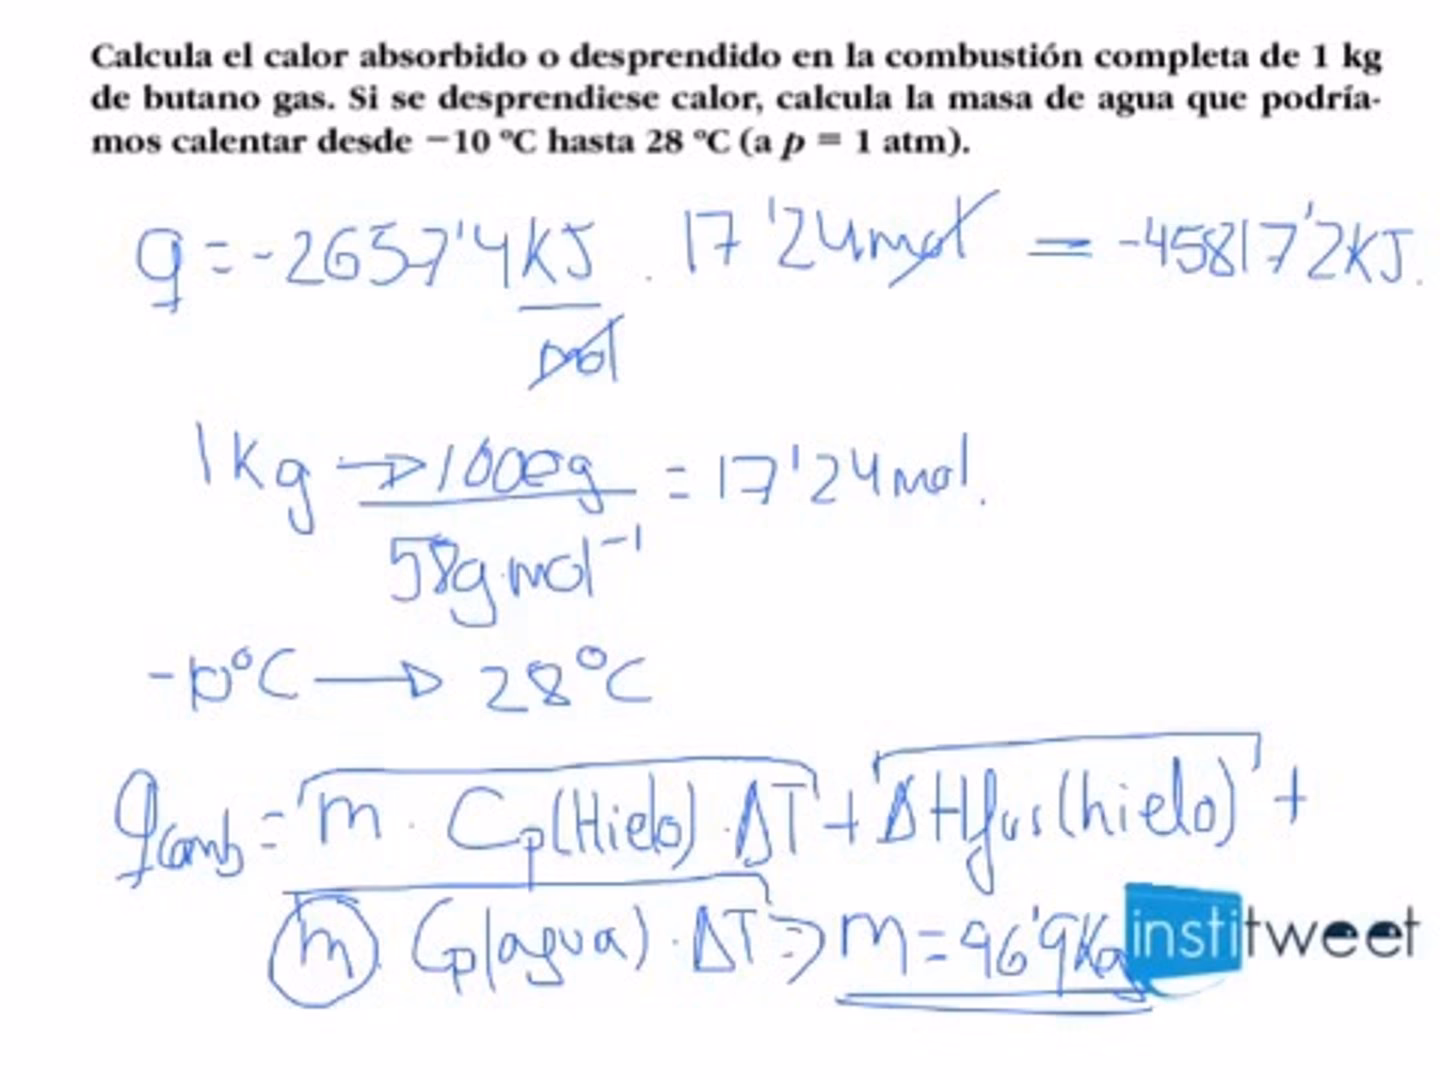 Calcula el calor absorbido o desprendido en la combustión completa de 1 kg
de butano gas. Si se desprendiese calor, calcula la masa de agua que podría-
mos calentar desde −10 ºC hasta 28 ºC (a p = 1 atm).
q = -2657'4 KJ/mol . 17'24 mol = -45817'2 KJ.
1 Kg → 1000g / 58g·mol⁻¹ = 17'24 mol.
-10°C → 28°C
qcomb = m · Cp(Hielo) · ΔT + ΔHfus(hielo) +
m Cp(agua) · ΔT => m = 96'9 Kg
institweet